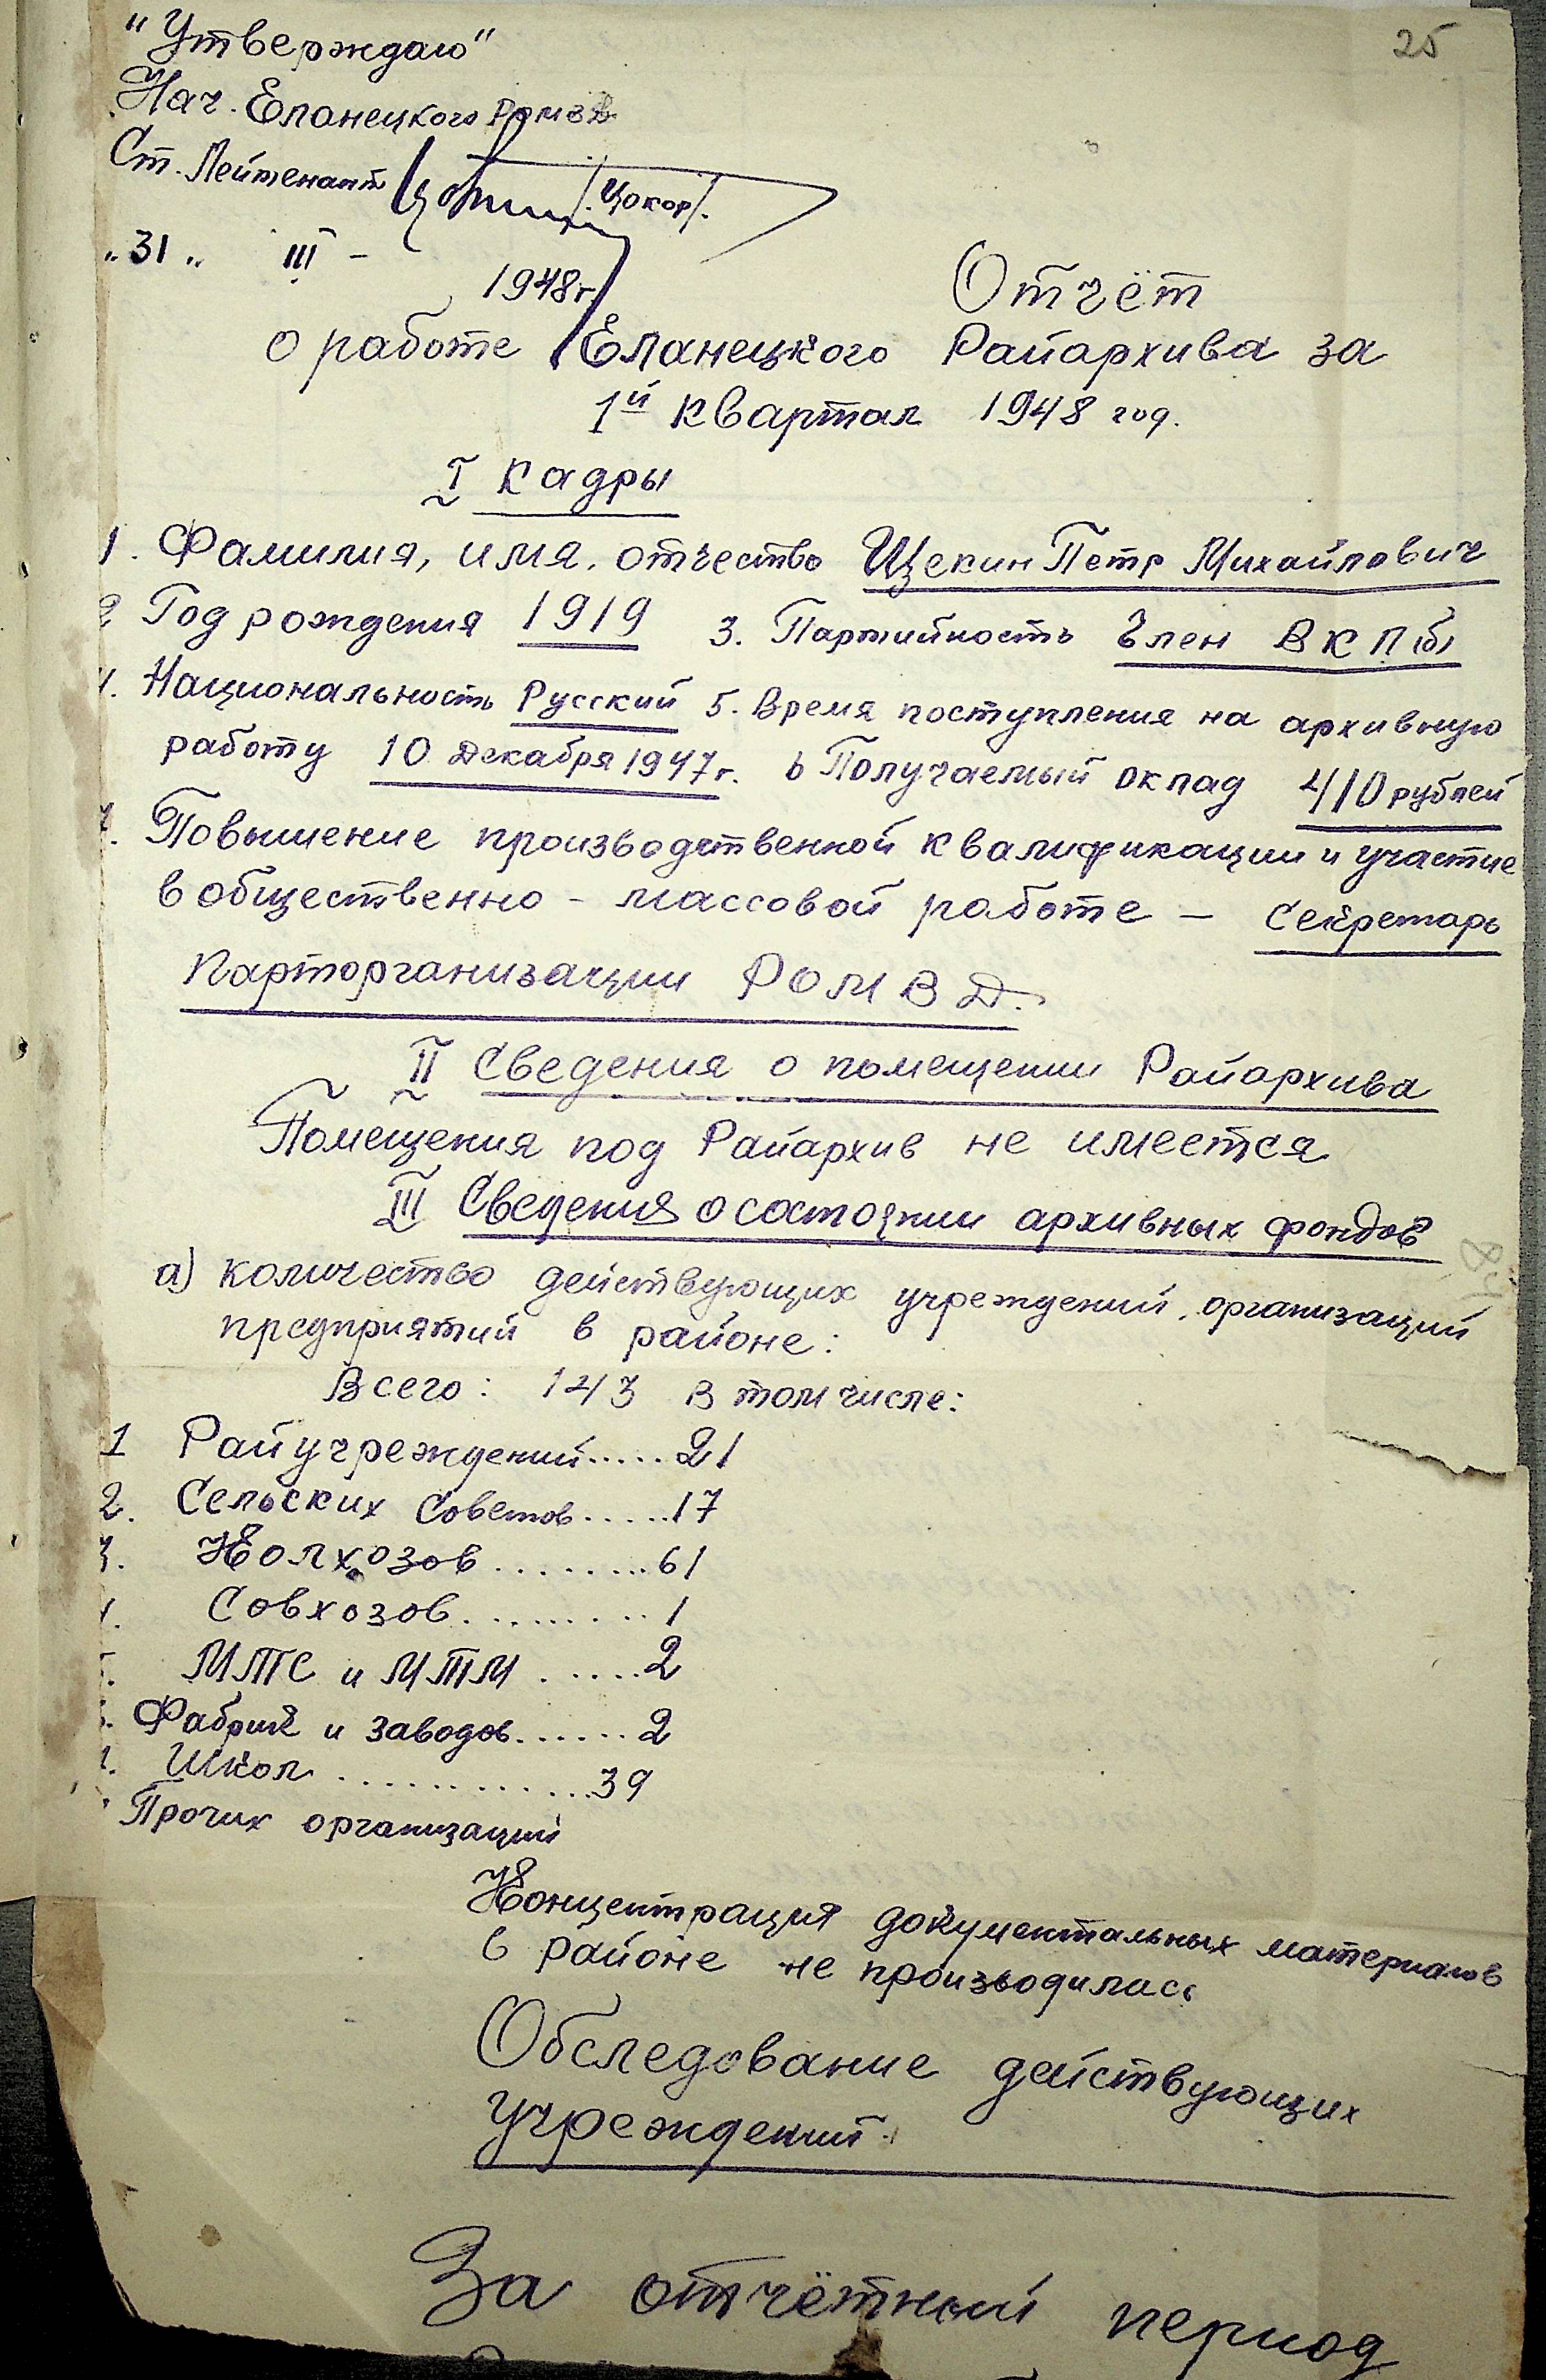 25
"Утверждаю"
Нач. Еланецкого РОМВД
Ст. Лейтенант /Цокор/.
"31" III - 1948г.
Отчёт
о работе Еланецкого Райархива за
1й квартал 1948 год.
I Кадры
1. Фамилия, имя, отчество Щекин Петр Михайлович
2 Год рождения 1919 3. Партийность Член ВКП(б)
4. Национальность Русский 5. Время поступления на архивную
работу 10 Декабря 1947г. 6 Получаемый оклад 410 рублей
7. Повышение производственной квалификации и участие
в общественно - массовой работе - Секретарь
Парторганизации РОМВД.
II Сведения о помещении Райархива
Помещения под Райархив не имеется
III Сведения о состоянии архивных фондов
а) количество действующих учреждений, организаций
предприятий в районе:
Всего: 143 в том числе:
1 Райучреждений.....21
2. Сельских Советов.....17
3. Колхозов........61
4. Совхозов.........1
5. МТС и МТМ.....2
6. Фабрик и заводов......2
7. Школ............39
Прочих организаций
Концентрация документальных материалов
в районе не производилась
Обследование действующих
учреждений.
За отчётный период